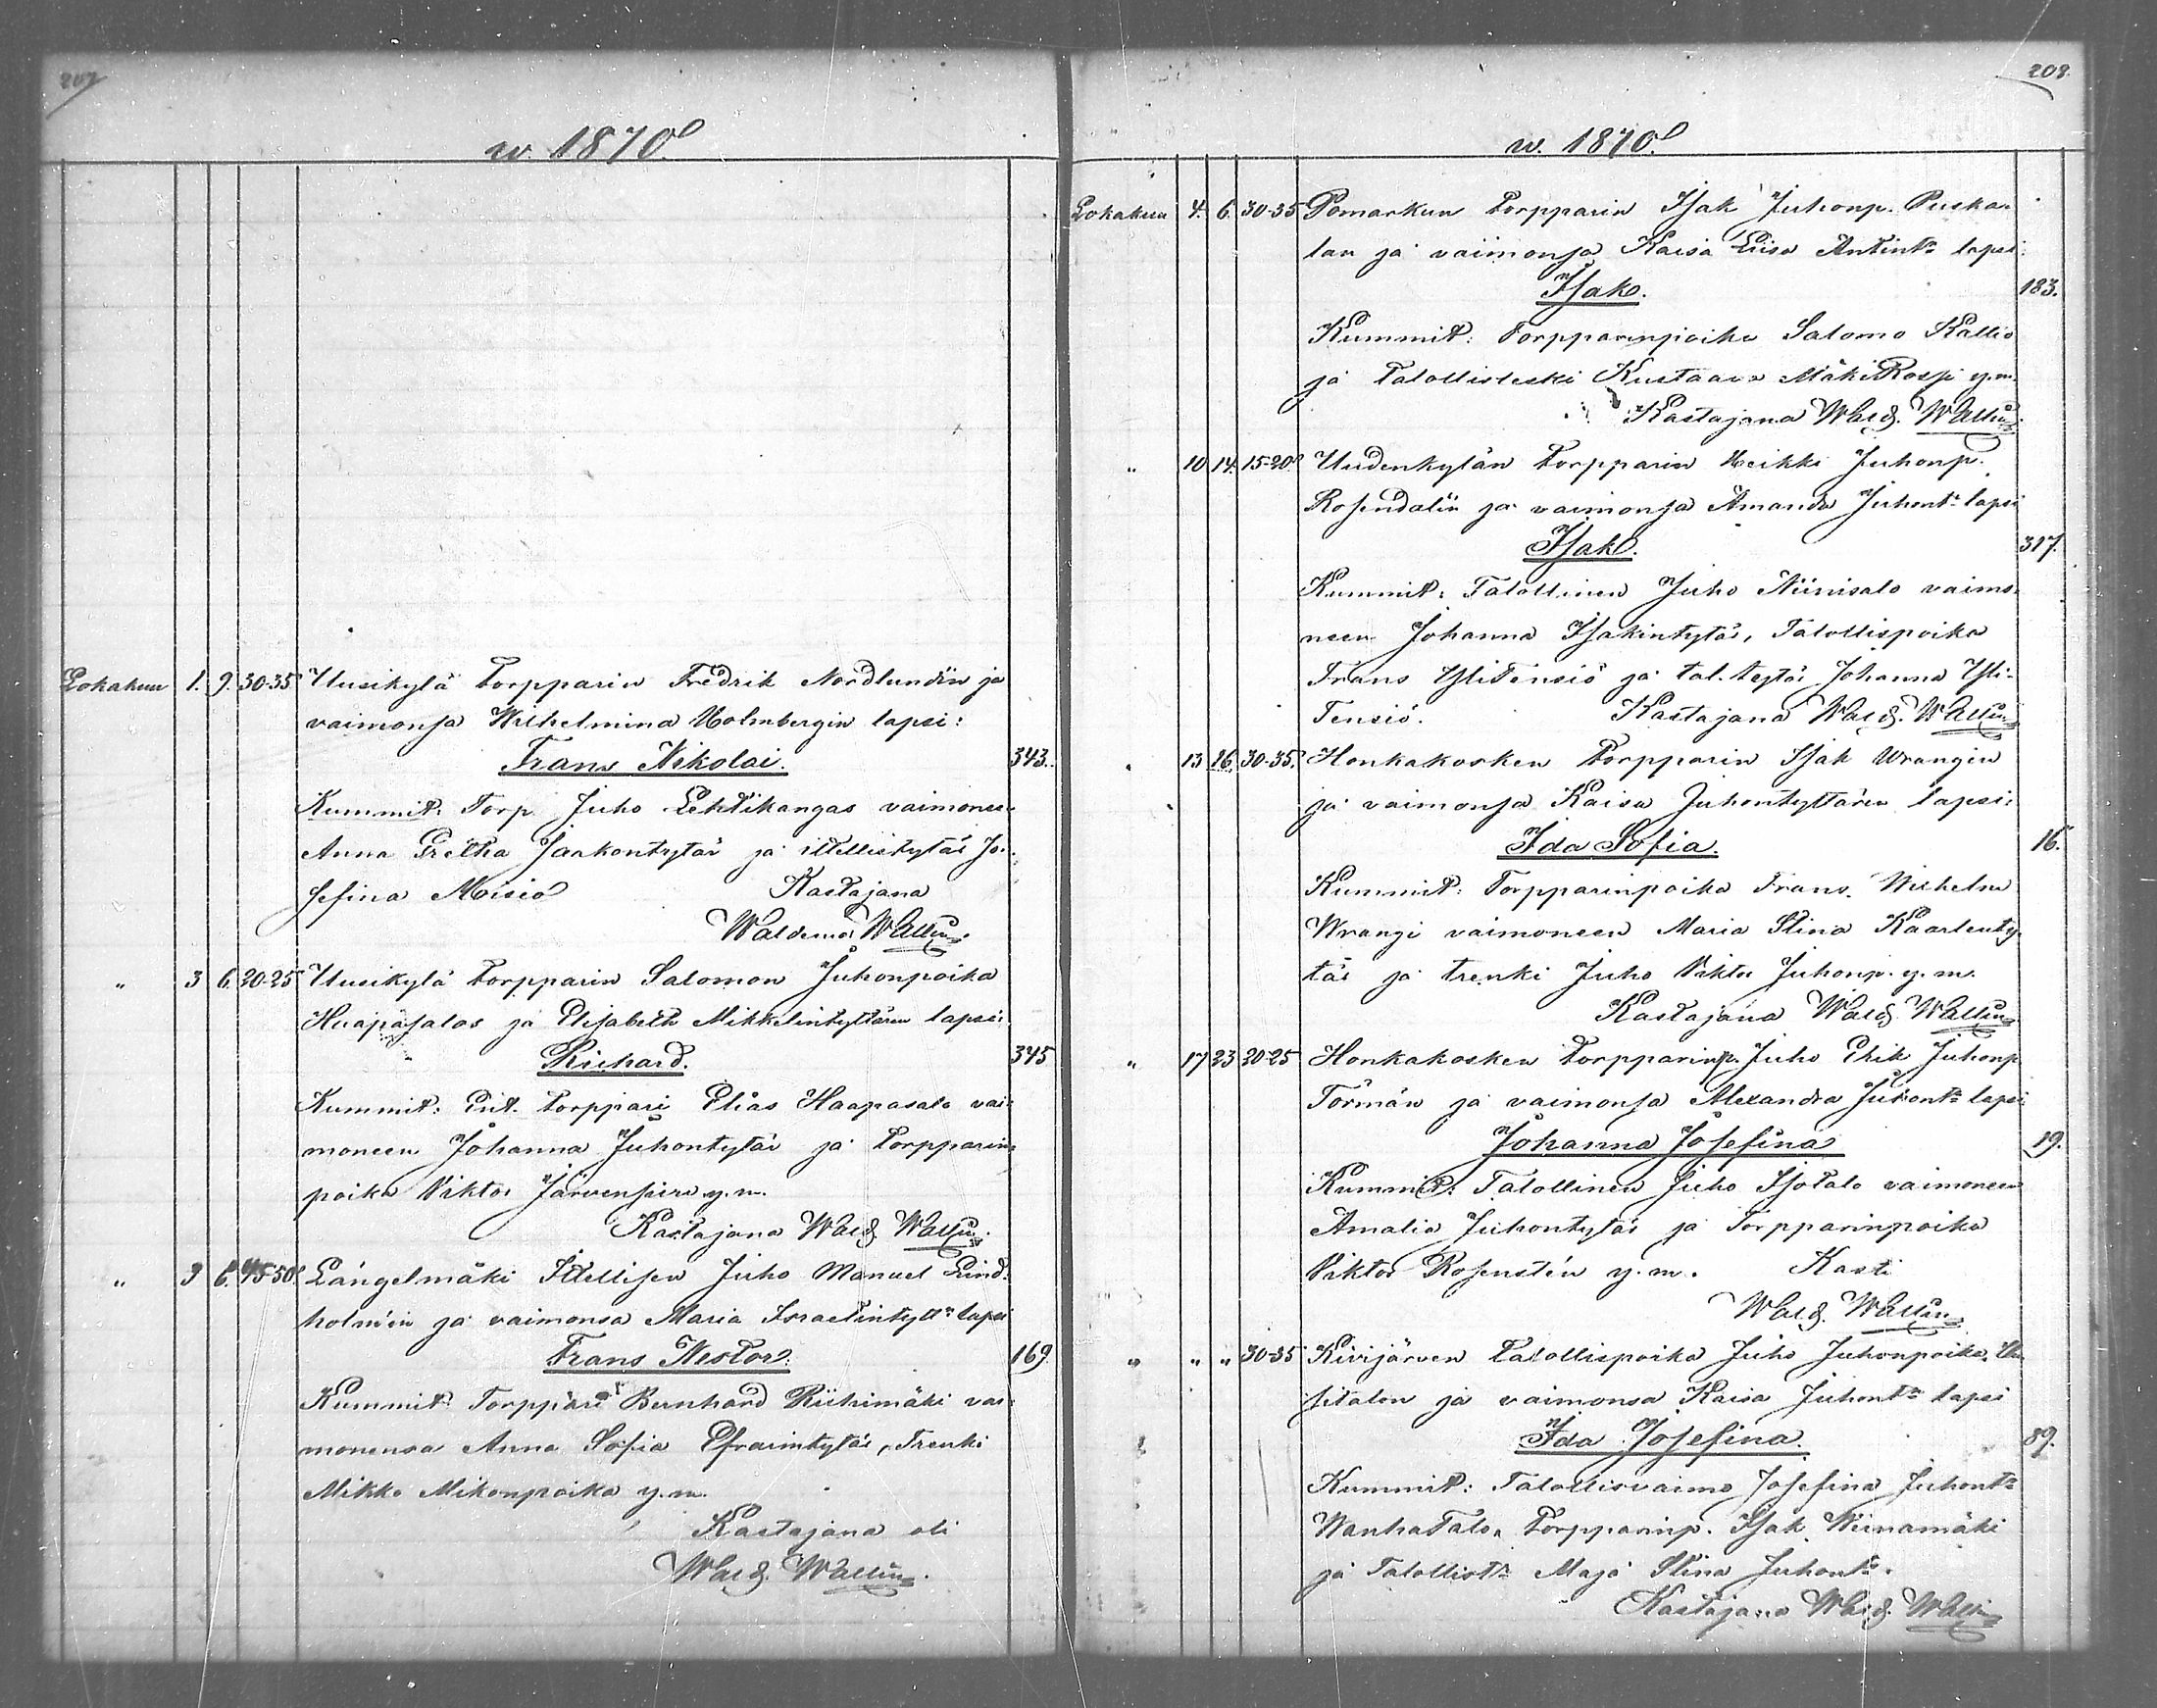 207
w. 1870.
Lokakuu 1. 9. 30-35 Uusikylä Torpparin Fredrik Nordlundin ja
vaimonsa Wilhelmina Holmbergin lapsi:
Frans Nikolai. 343.
Kummit: Torp. Juho Lehtikangas vaimoneen
Anna Pretha Jaakontytär ja itellistytär Jo-
sefina Moisio Kastajana
Waldemar Wallin.
" 3 6. 20-25 Uusikylä Torpparin Salomon Juhonpoika
Haapasalos ja Elisabeth Mikkelintyttären lapsi:
Richard. 345
Kummit: Ent. Torppari Elias Haapasalo vai-
moneen Johanna Juhontytär ja Torpparin
poika Viktor Järvensivu y.m.
Kastajana Wald. Wallin.
" 3 6. 45-50 Längelmäki Itellisen Juho Manuel Lind-
holm'in ja vaimonsa Maria Israelintytt:n lapsi
Frans Nestor. 169.
Kummit: Torppari Bernhard Riihimäki vai-
monensa Anna Sofia Efraimtytär, Trenki
Mikko Mikonpoika y.m.
Kastajana oli
Wald. Wallin.
208.
w. 1870.
Lokakuu 4. 6. 30-35 Pomarkun Torpparin Isak Juhonp. Puska-
lan ja vaimonsa Kaisa Liisa Antint:n lapsi:
Isak. 183.
Kummit: Torpparinpoika Salomo Kallio
ja Talollisleski Kustaava MäkiRossi y.m.
Kastajana Wald. Wallin
" 10 14. 15-20 Uudenkylän Torpparin Heikki Juhonp.
Rosendalin ja vaimonsa Amanda Juhont:n lapsi
Isak. 317.
Kummit: Talollinen Juho Niinisalo vaimo-
neen Johanna Isakintytär, Talollispoika
Frans YliTensiö ja tal. tytär Johanna Yli-
Tensiö. Kastajana Wald. Wallin
" 13 16. 30-35. Honkakosken Torpparin Isak Wrangin
ja vaimonsa Kaisa Juhontyttären lapsi:
Ida Sofia. 16.
Kummit: Torpparinpoika Frans Wilhelm
Wrangi vaimoneen Maria Stina Kaarlenty-
tär ja trenki Juho Viktor Juhonp. y.m.
Kastajana Wald. Wallin
" 17 23 20-25 Honkakosken Torpparinp. Juho Erik Juhonp.
Törmän ja vaimonsa Alexandra Juhont:n lapsi
Johanna Josefina 19.
Kummit: Talollinen Juho Isotalo vaimoneen
Amalia Juhontytär ja Torpparinpoika
Viktor Rosenstén y.m. Kasti
Wald. Wallin
" " " 30-35 Kivijärven Talollispoika Juho Juhonpoika Uu-
sitalon ja vaimonsa Kaisa Juhont:n lapsi
Ida Josefina. 89.
Kummit: Talollisvaimo Josefina Juhont:r
WanhaTalo, Torpparinp. Isak Niinamäki
ja Talollist:r Maja Stina Juhont:r.
Kastajana Wald. Wallin